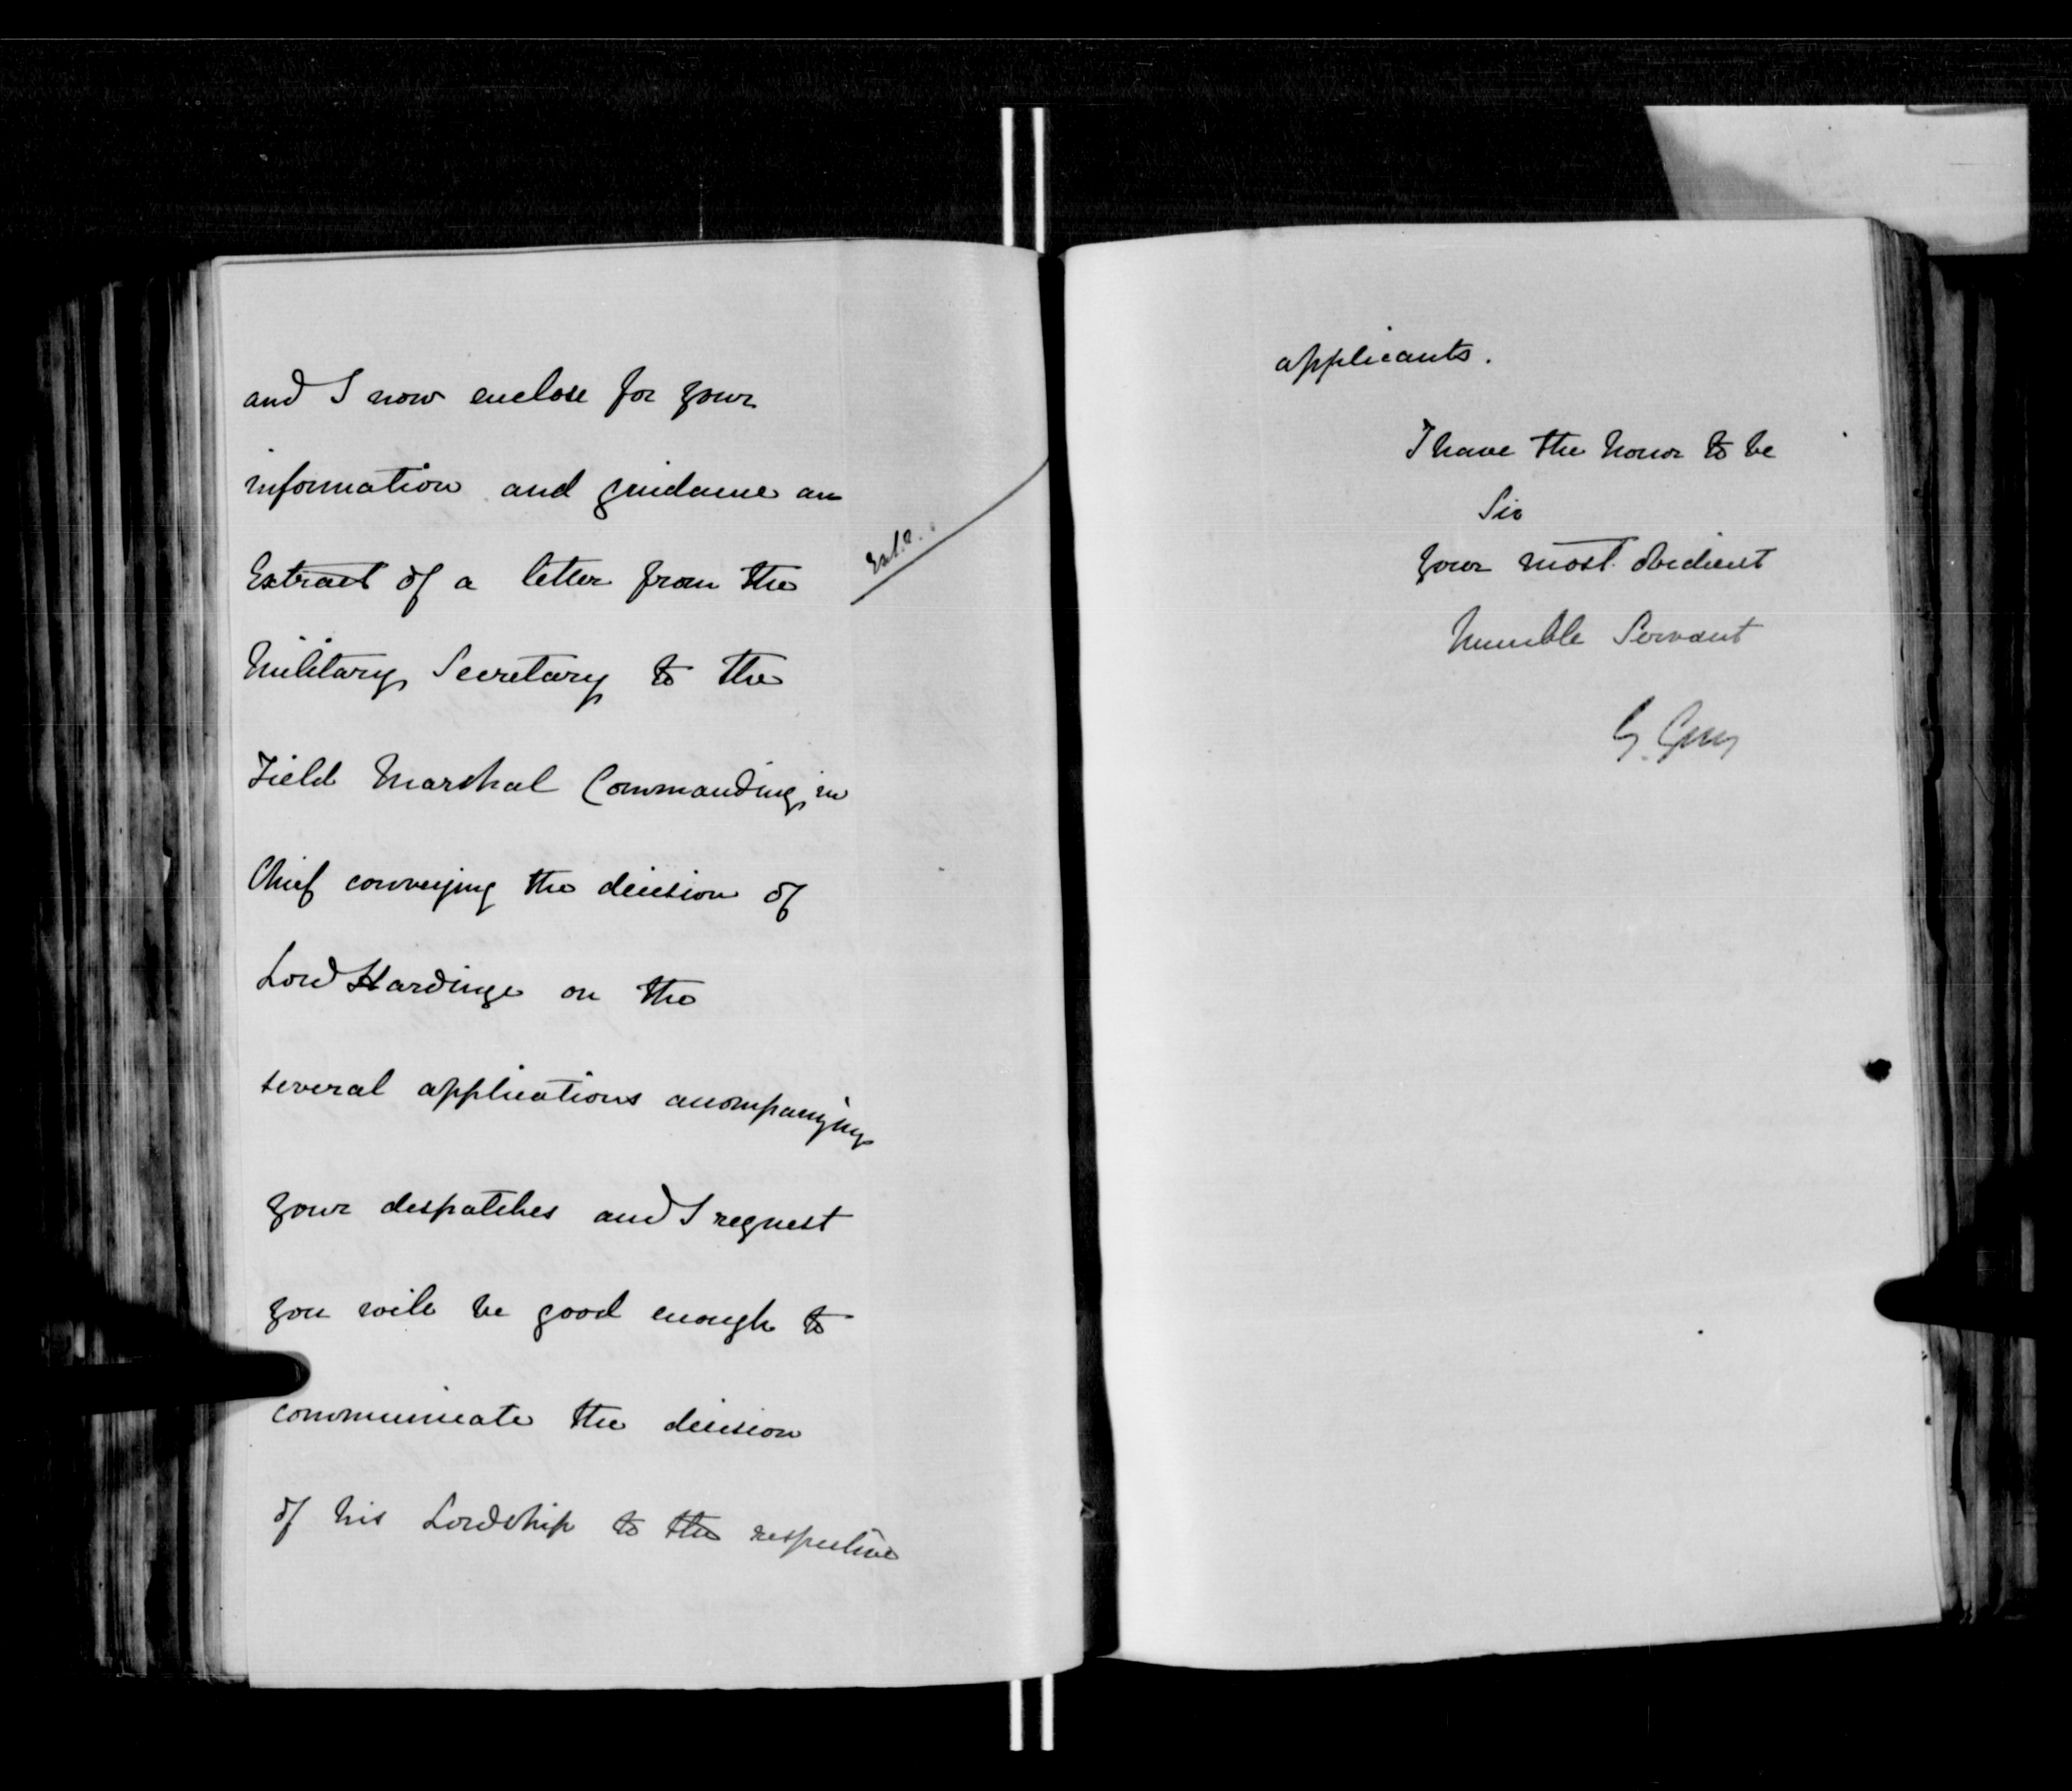 and I now enclose for your
information and guidance an
Extract of a letter from the
Military Secretary to the
Field Marshal Commanding in
Chief conveying the decision of
Lord Hardinge on the
several applications accompanying
your despatches and I request
you will be good enough to
communicate the decision
of his Lordship to the respective
applicants.
I have the honor to be
Sir
Your most obedient
humble Servant
G. Grey